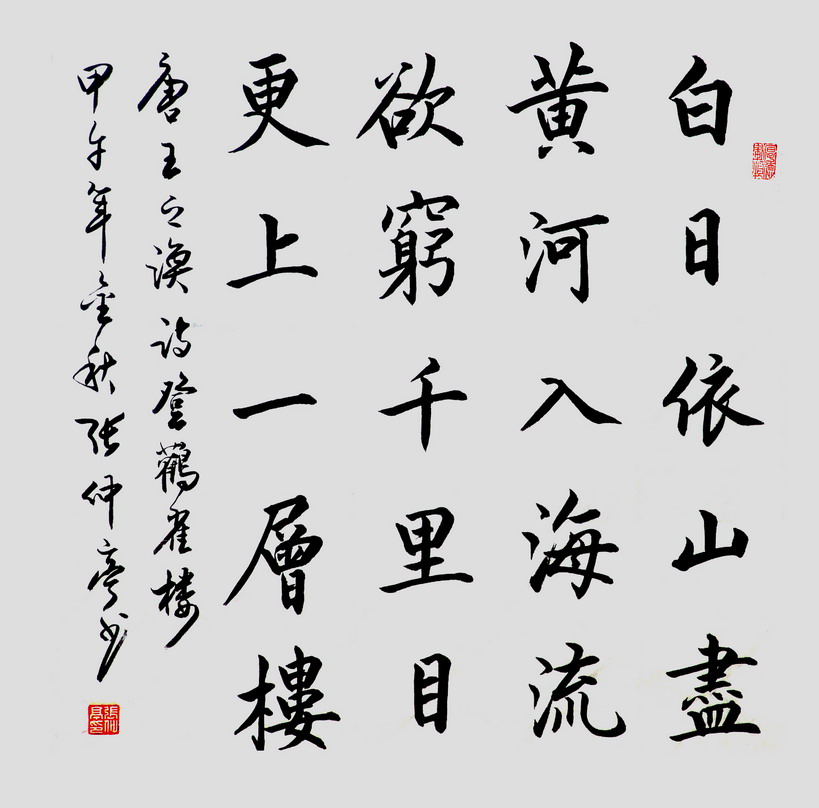 白日依山盡
黄河入海流
欲窮千里目
更上一層樓
唐王之渙詩登鸛雀楼
甲午年金秋張仲亭书
張仲亭印